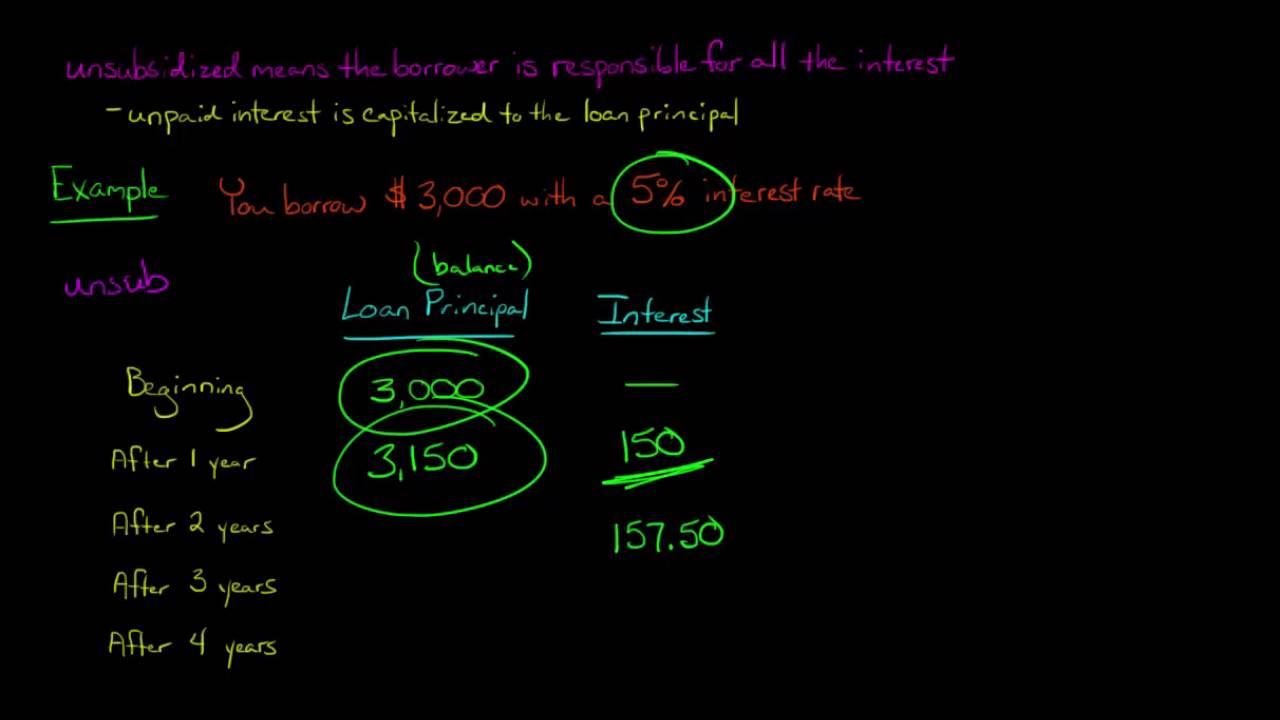 unsubsidized means the borrower is responsible for all the interest
- unpaid interest is capitalized to the loan principal
Example You borrow $3,000 with a 5% interest rate
unsub
(balance)
Loan Principal Interest
Beginning 3,000 —
After 1 year 3,150 150
After 2 years 157.50
After 3 years
After 4 years